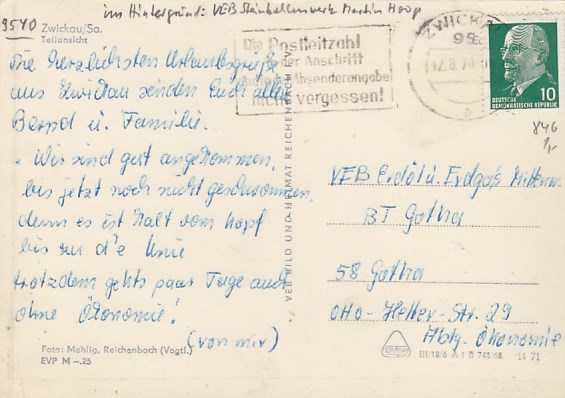 im Hintergrund: VEB Steinkohlenwerk Martin Hoop
9540
Zwickau/Sa.
Teilansicht
Die herzlichsten Urlaubsgrüße
aus Zwickau senden Euch allen
Bernd u. Familie.
Wir sind gut angekommen,
bis jetzt noch nicht geschwommen,
denn es ist halt vom Kopf
bis zu d'e Knie
trotzdem gehts paar Tage auch
ohne Ökonomie!
(von mir)
Foto: Mehlig, Reichenbach (Vogtl.)
EVP M –.25
VEB BILD UND HEIMAT REICHENBACH
Die Postleitzahl
der Anschrift
Absenderangabe
nicht vergessen!
ZWICK
95
12.8.7
10
DEUTSCHE
DEMOKRATISCHE REPUBLIK
846
1,-
VEB Erdöl u. Erdgas Mittenw.
BT Gotha
58 Gotha
Otto-Heller-Str. 29
Abtg. Ökonomie
III/18/6 A 1 B 745/68 14 71